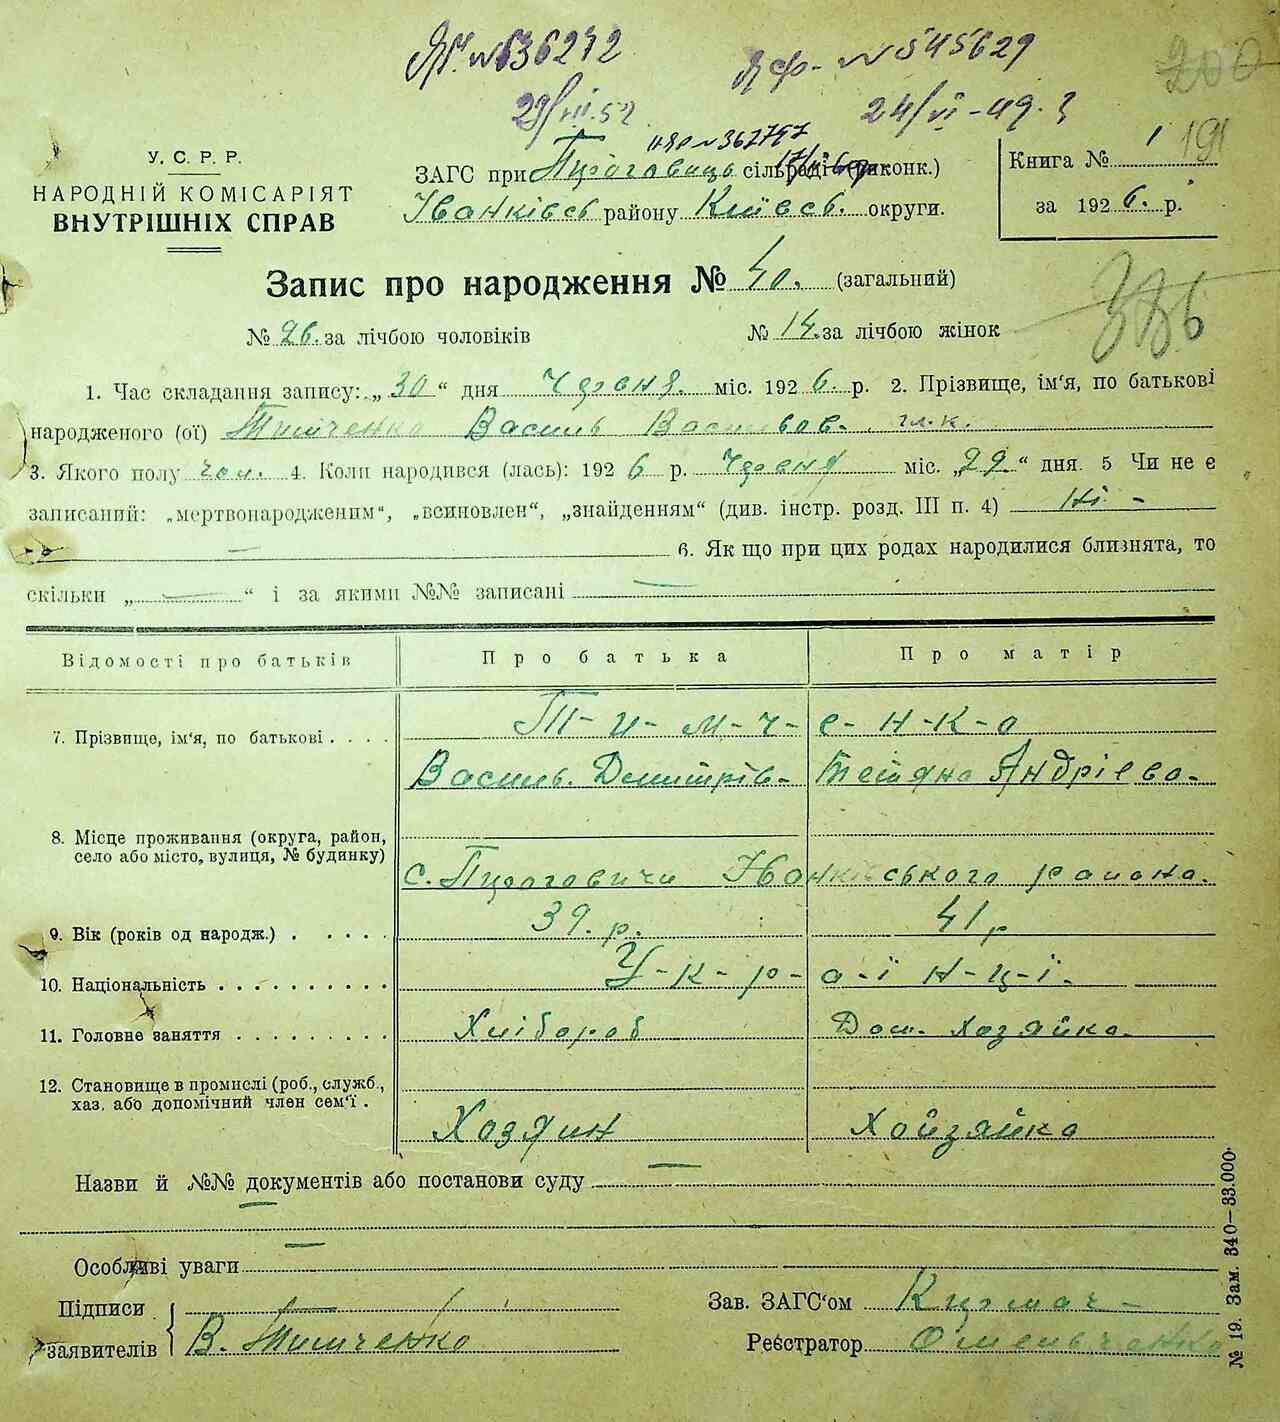 № 636272
№ 545629
200
29/VII.52
24/VI-49
№ 362797
191
У. С. Р. Р.
НАРОДНІЙ КОМІСАРІЯТ
ВНУТРІШНІХ СПРАВ
ЗАГС при Пирогович сільраді (риконк.)
Іванківсь району Київсь. округи.
Книга № 1
за 1926. р.
Запис про народження № 40. (загальний)
386
№ 26. за лічбою чоловіків
№ 14. за лічбою жінок
1. Час складання запису: „30“ дня Червня. міс. 1926. р. 2. Прізвище, ім'я, по батькові
народженого (ої) Тимченко Василь Васильов.
3. Якого полу чол. 4. Коли народився (лась): 1926 р. Червня міс. „29.“ дня. 5 Чи не є
записаний: „мертвонародженим“, „всиновлен“, „знайденням“ (див. інстр. розд. III п. 4) Ні -
6. Як що при цих родах народилися близнята, то
скільки „—“ і за якими №№ записані —
Відомості про батьків
Про батька
Про матір
7. Прізвище, ім'я, по батькові
Т-и-м-ч-е-н-к-о
Василь. Дмитрів- Тетяна Андрієва-
8. Місце проживання (округа, район,
село або місто, вулиця, № будинку)
с. Пироговичи Іванківського района.
9. Вік (років од народж.) 39. р. 41 р
10. Національність У-к-р-а-ї н-ц-ї-
11. Головне заняття Хлібороб Дом. хозяйка.
12. Становище в промислі (роб., служб.,
хаз. або допомічний член сем'ї.
Хозяин Хойзяйка
Назви й №№ документів або постанови суду —
Особливі уваги
Підписи
заявителів В. Тимченко
Зав. ЗАГС'ом
Реєстратор Омельченко
№ 19. Зам. 340—33.000.